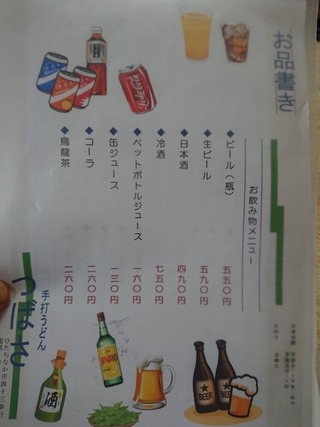 お品書き
お飲み物メニュー
◆ビール(瓶) 五五〇円
◆生ビール 五九〇円
◆日本酒 四九〇円
◆冷酒 七五〇円
◆ペットボトルジュース 一六〇円
◆缶ジュース 一三〇円
◆コーラ 二六〇円
◆烏龍茶 二六〇円
手打うどん
つばさ
BEER
BEER
酒